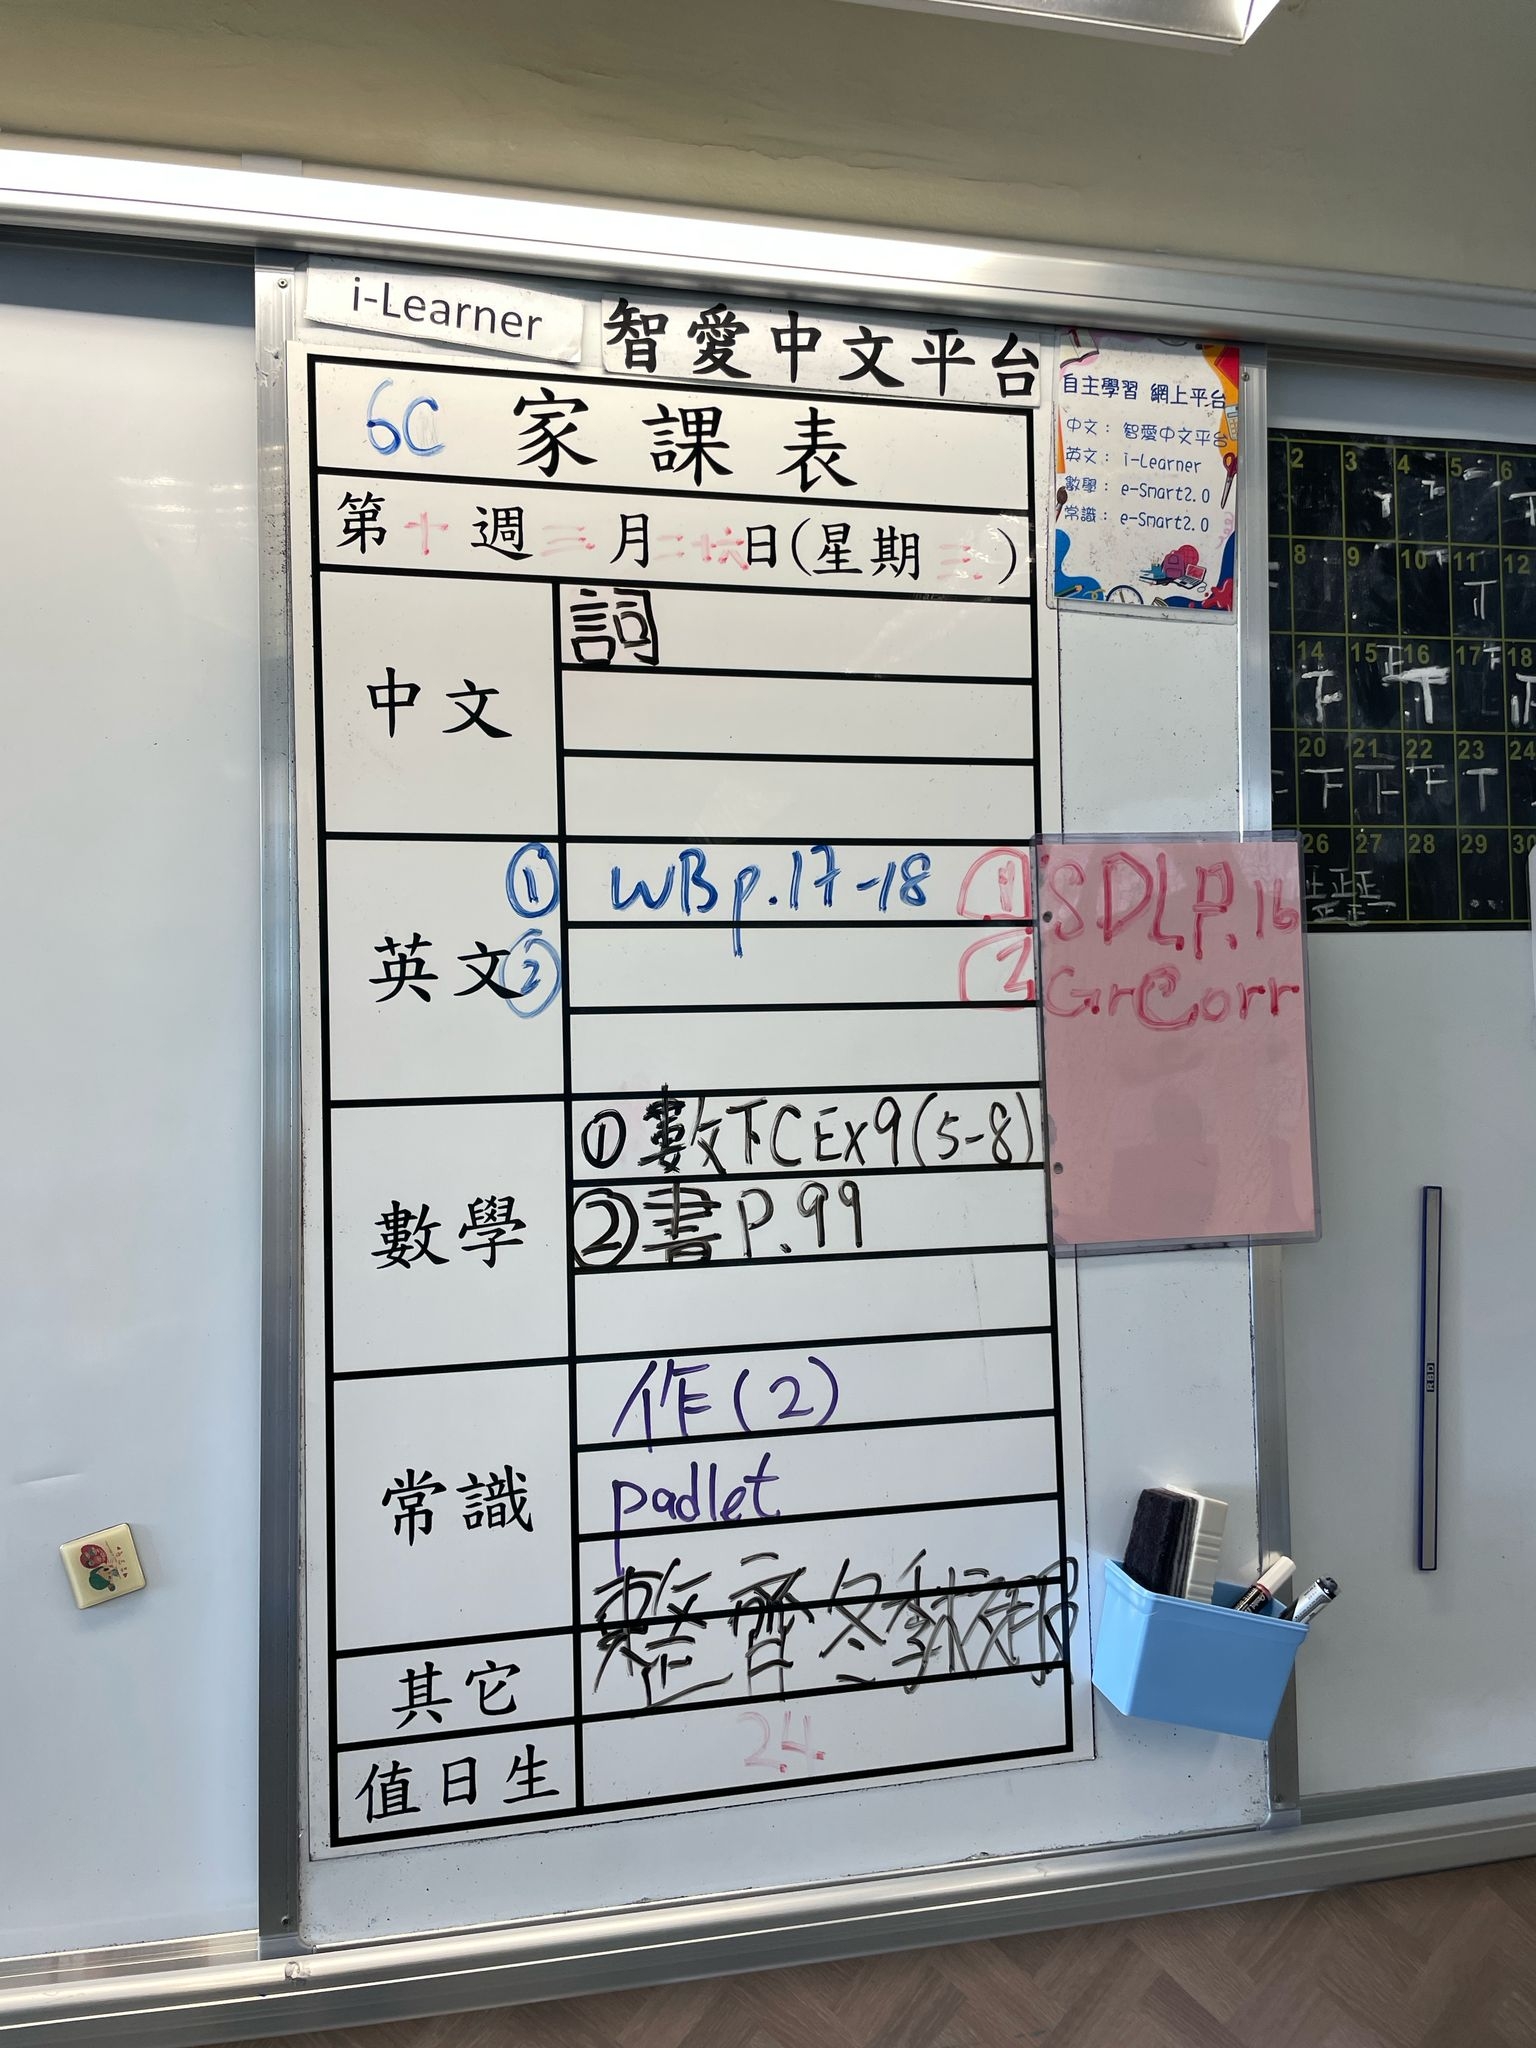 i-Learner
智愛中文平台
6C 家課表
第十週三月二十六日(星期三)
中文
詞
英文
① WBp.17-18
②
① SDL P.16
② GrCorr
數學
① 數下C Ex9(5-8)
② 書P.99
常識
作(2)
padlet
其它
整齊冬季校服
值日生
24
自主學習 網上平台
中文： 智愛中文平台
英文： i-Learner
數學： e-Smart2.0
常識： e-Smart2.0
2 3 4 5 6
8 9 10 11 12
14 15 16 17 18
20 21 22 23 24
26 27 28 29 30
RBD